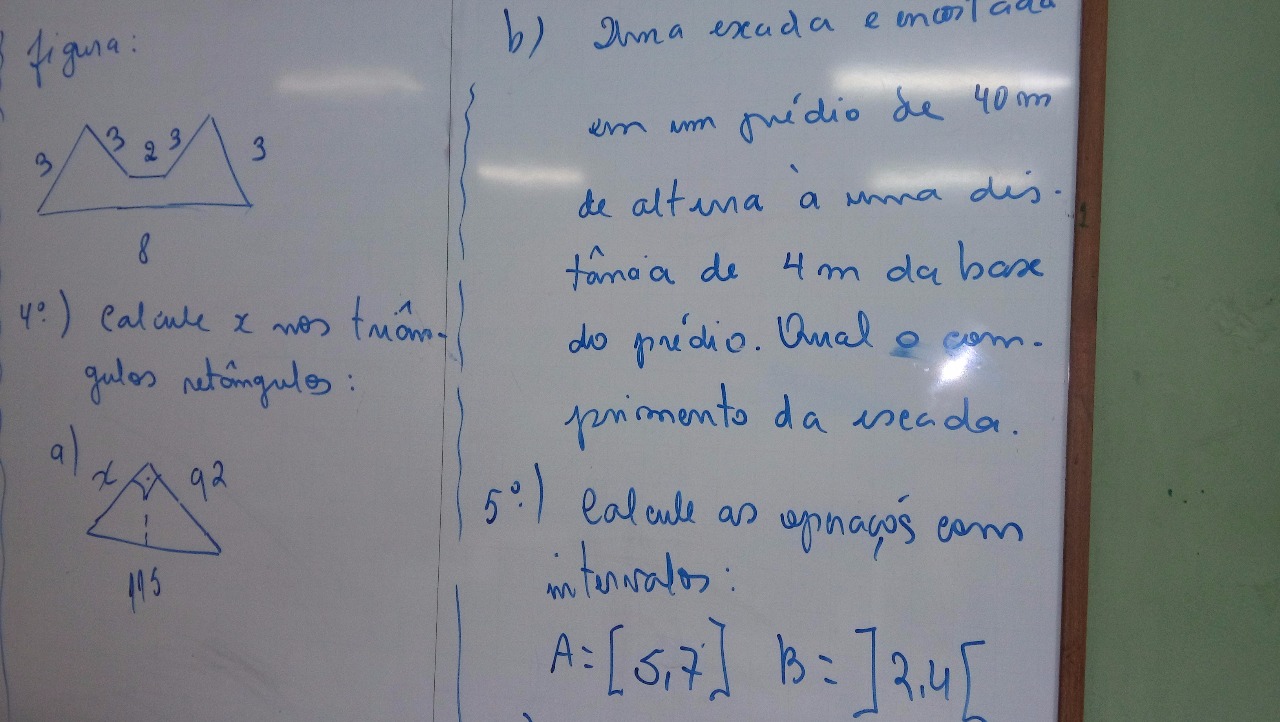 figura:
3 3 2 3 3
8
4º) Calcule x nos triân-
gulos retângulos:
a)
x 92
115
b) Uma escada e encostada
em um prédio de 40m
de altura à uma dis-
tância de 4m da base
do prédio. Qual o com-
primento da escada.
5º) Calcule as operaçõs com
intervalos:
A=[5,7] B=]2,4[